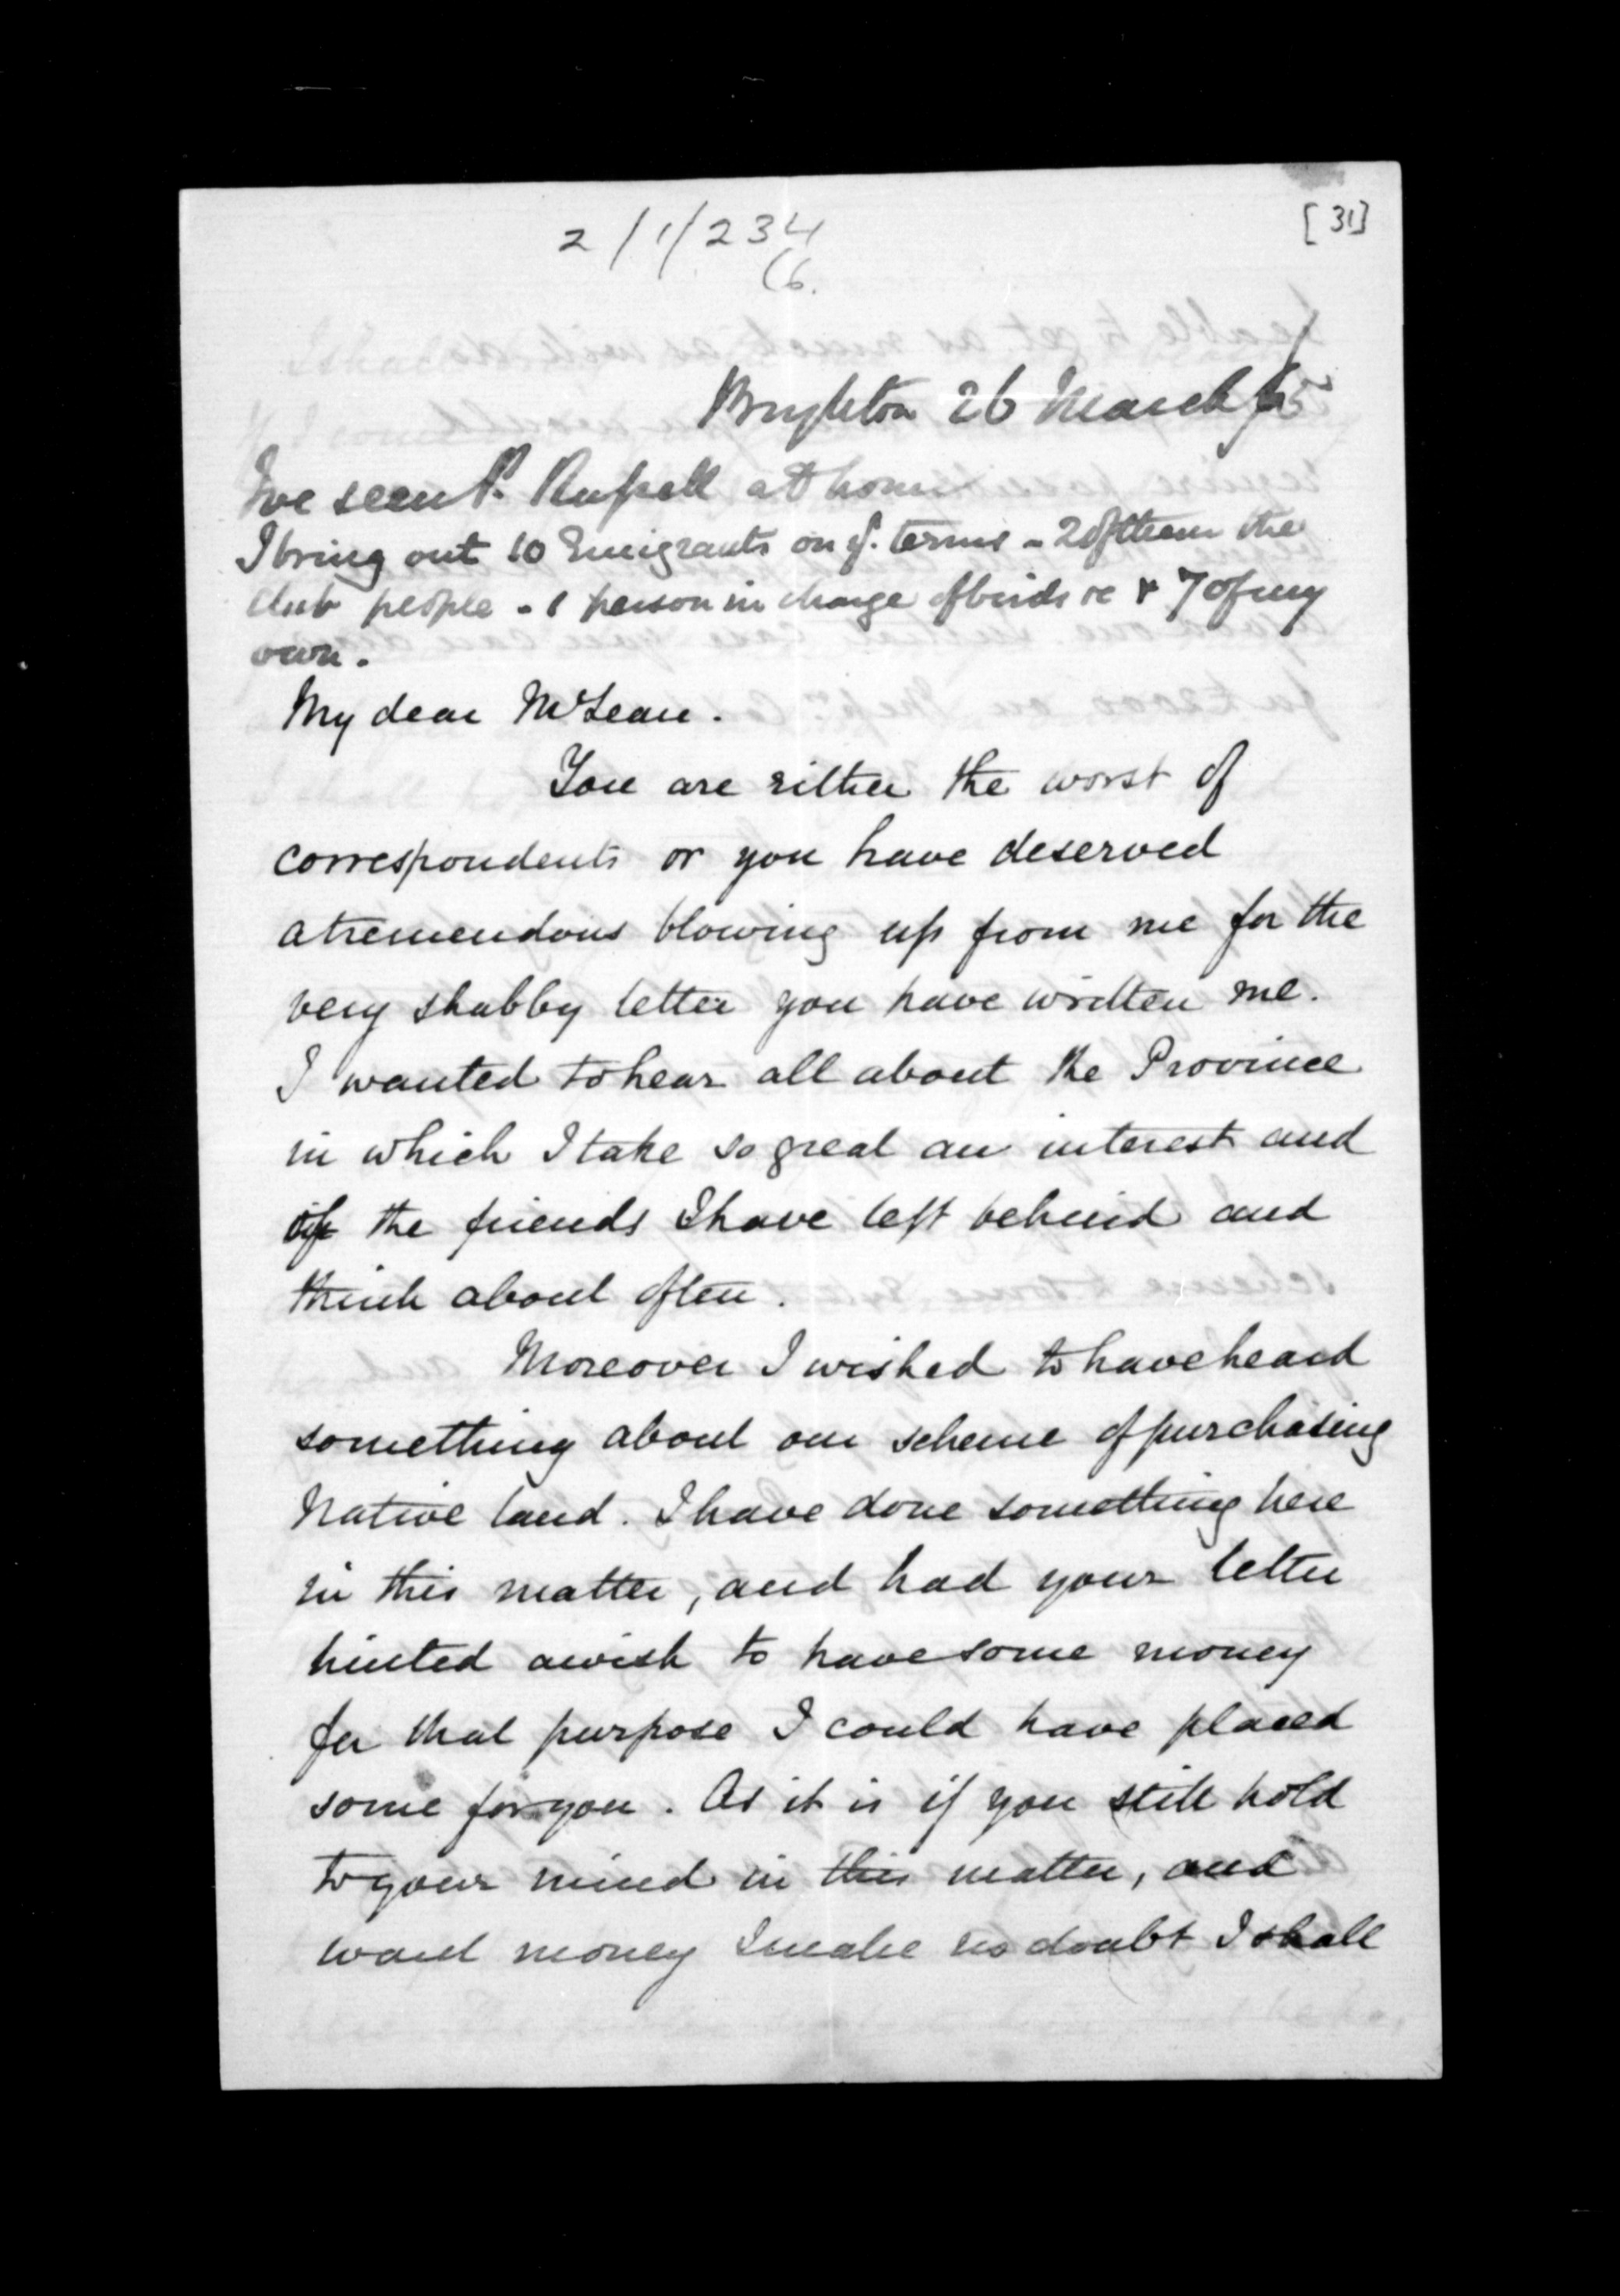 [31]
2/1/234
(6.
Brighton 26 March /65
I've seen P. Russell at home
I bring out 10 Emigrants on yr. terms - 2 of them the
Club people - 1 person in charge of birds &c & 7 of my
own.
My dear McLean.
You are either the worst of
correspondents or you have deserved
a tremendous blowing up from me for the
very shabby letter you have written me.
I wanted to hear all about the Province
in which I take so great an interest and
of the friends I have left behind and
think about often.
Moreover I wished to have heard
something about our scheme of purchasing
Native land. I have done something here
in this matter, and had your letter
hinted a wish to have some money
for that purpose I could have placed
some for you. As it is if you still hold
to your mind in this matter, and
want money I make no doubt I shall